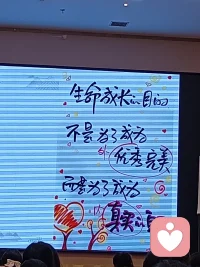 生命成长的目的
不是为了成为
优秀完美
而是为了成为
真实的